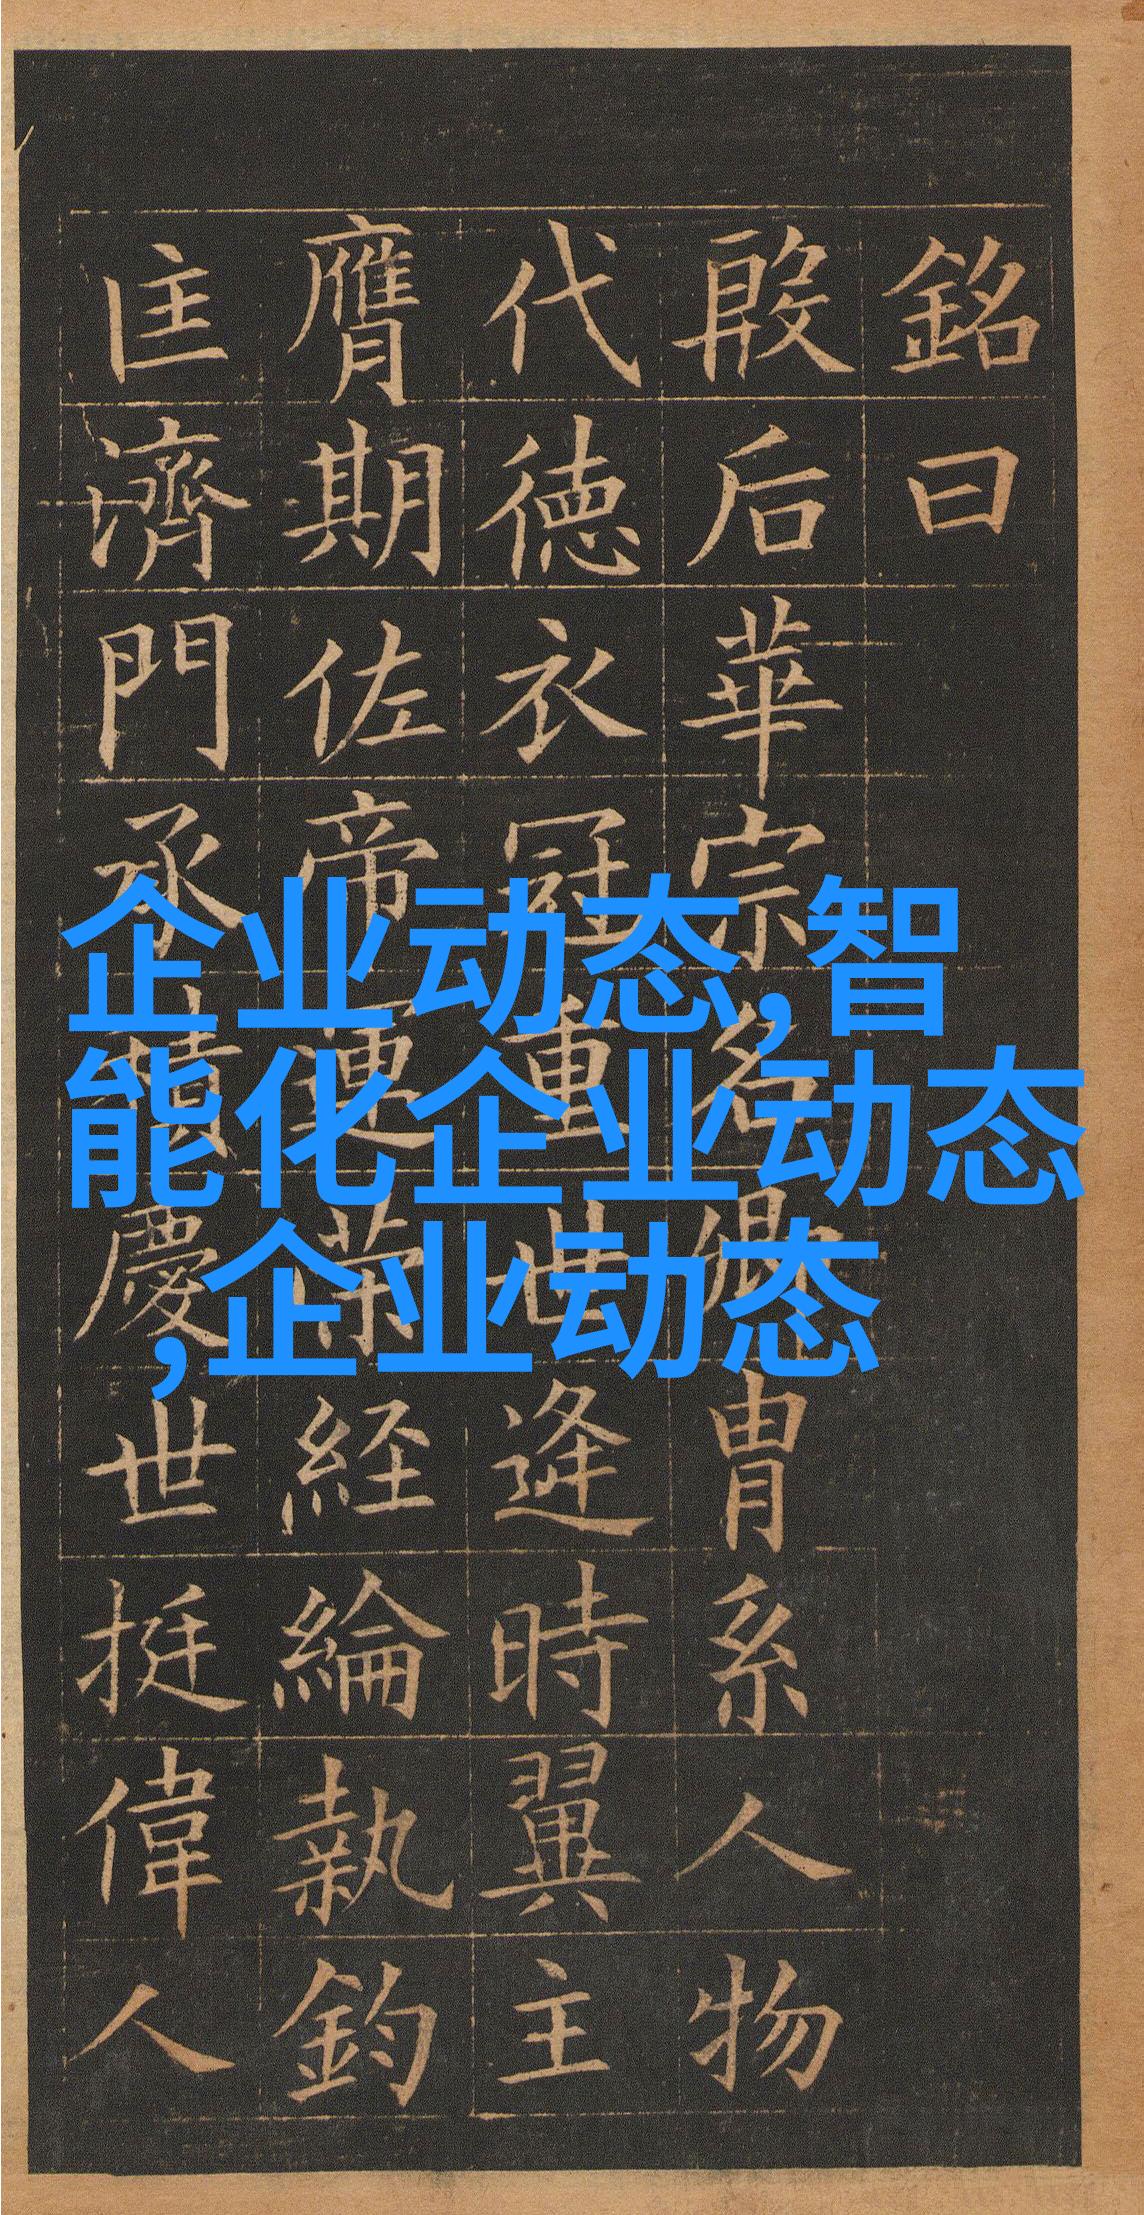 銘曰
殷后華宗名卿冑系人物
代德衣冠重世逢時翼主
膺期佐帝運策經綸執鈞
匡濟門承積慶世挺偉人
企业动态,智
能化企业动态
,企业动态